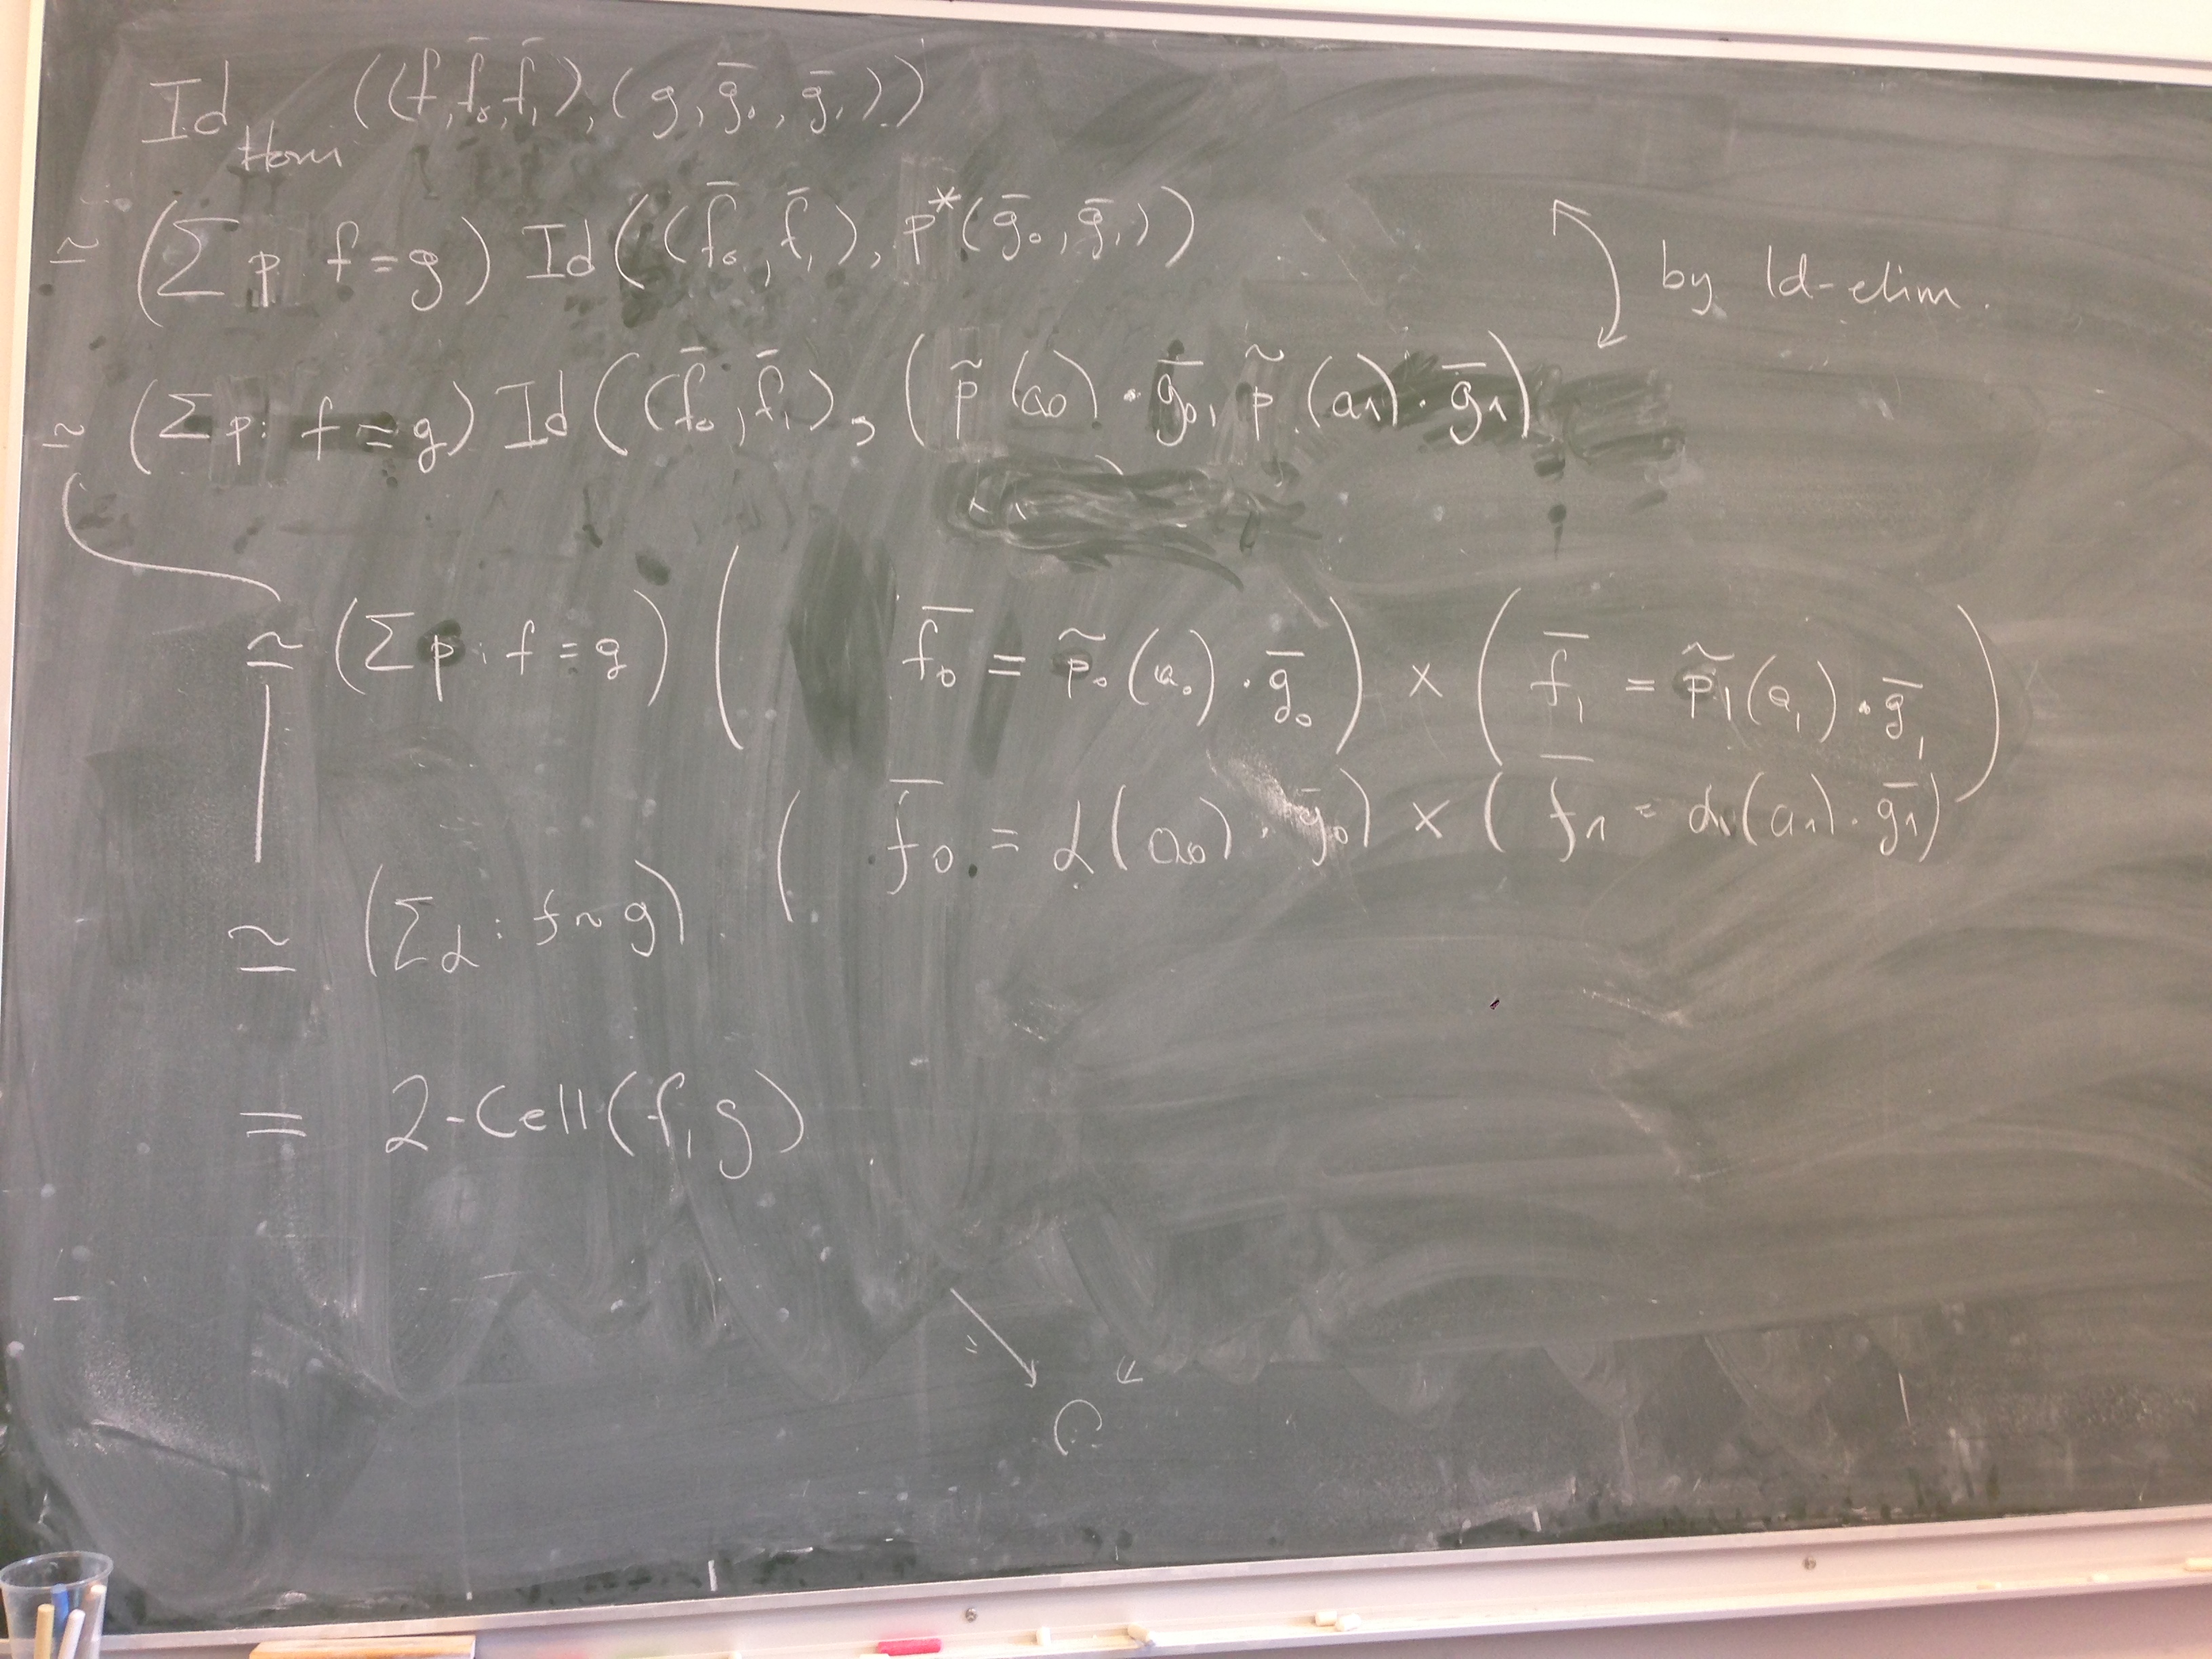 Id_Hom ((f, f̄₀, f̄₁), (g, ḡ₀, ḡ₁))
≃ (Σ p : f = g) Id((f̄₀, f̄₁), p*(ḡ₀, ḡ₁))
by Id-elim.
≃ (Σ p : f = g) Id((f̄₀, f̄₁), (p̃(a₀) · ḡ₀, p̃(a₁) · ḡ₁)
≃ (Σ p : f = g) ( f̄₀ = p̃₀(a₀) · ḡ₀ ) × ( f̄₁ = p̃₁(a₁) · ḡ₁ )
≃ (Σ α : f ~ g) ( f̄₀ = α(a₀) · ḡ₀) × ( f̄₁ = α(a₁) · ḡ₁)
= 2-Cell(f, g)